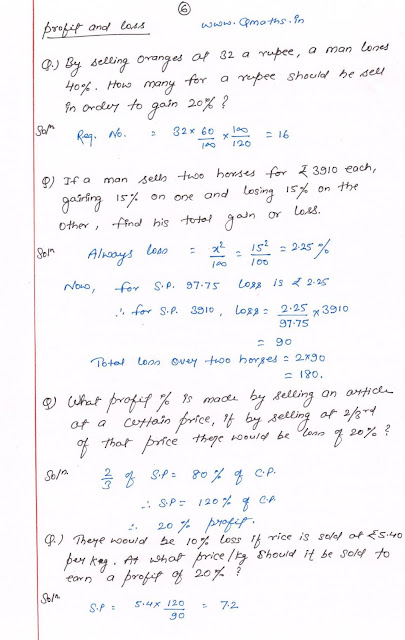 6
profit and loss
www.Qmaths.in
Q.) By selling oranges at 32 a rupee, a man loses
40%. How many for a rupee should he sell
in order to gain 20%?
Solⁿ
Req. No. = 32 × 60/100 × 100/120 = 16
Q) If a man sells two horses for ₹ 3910 each,
gaining 15% on one and losing 15% on the
other, find his total gain or loss.
Solⁿ Always loss = x²/100 = 15²/100 = 2.25%
Now, for S.P. 97.75 Loss is ₹ 2.25
∴ for S.P. 3910, Loss = 2.25/97.75 × 3910
= 90
Total loss over two horses = 2×90
= 180.
Q) What profit % is made by selling an article
at a certain price, if by selling at 2/3rd
of that price there would be loss of 20%?
Solⁿ. 2/3 of S.P = 80% of C.P.
∴ S.P = 120% of C.P.
∴ 20% profit.
Q.) There would be 10% loss if rice is sold at ₹5.40
per kg. At what price/kg should it be sold to
earn a profit of 20%?
Solⁿ.
S.P = 5.4 × 120/90 = 7.2